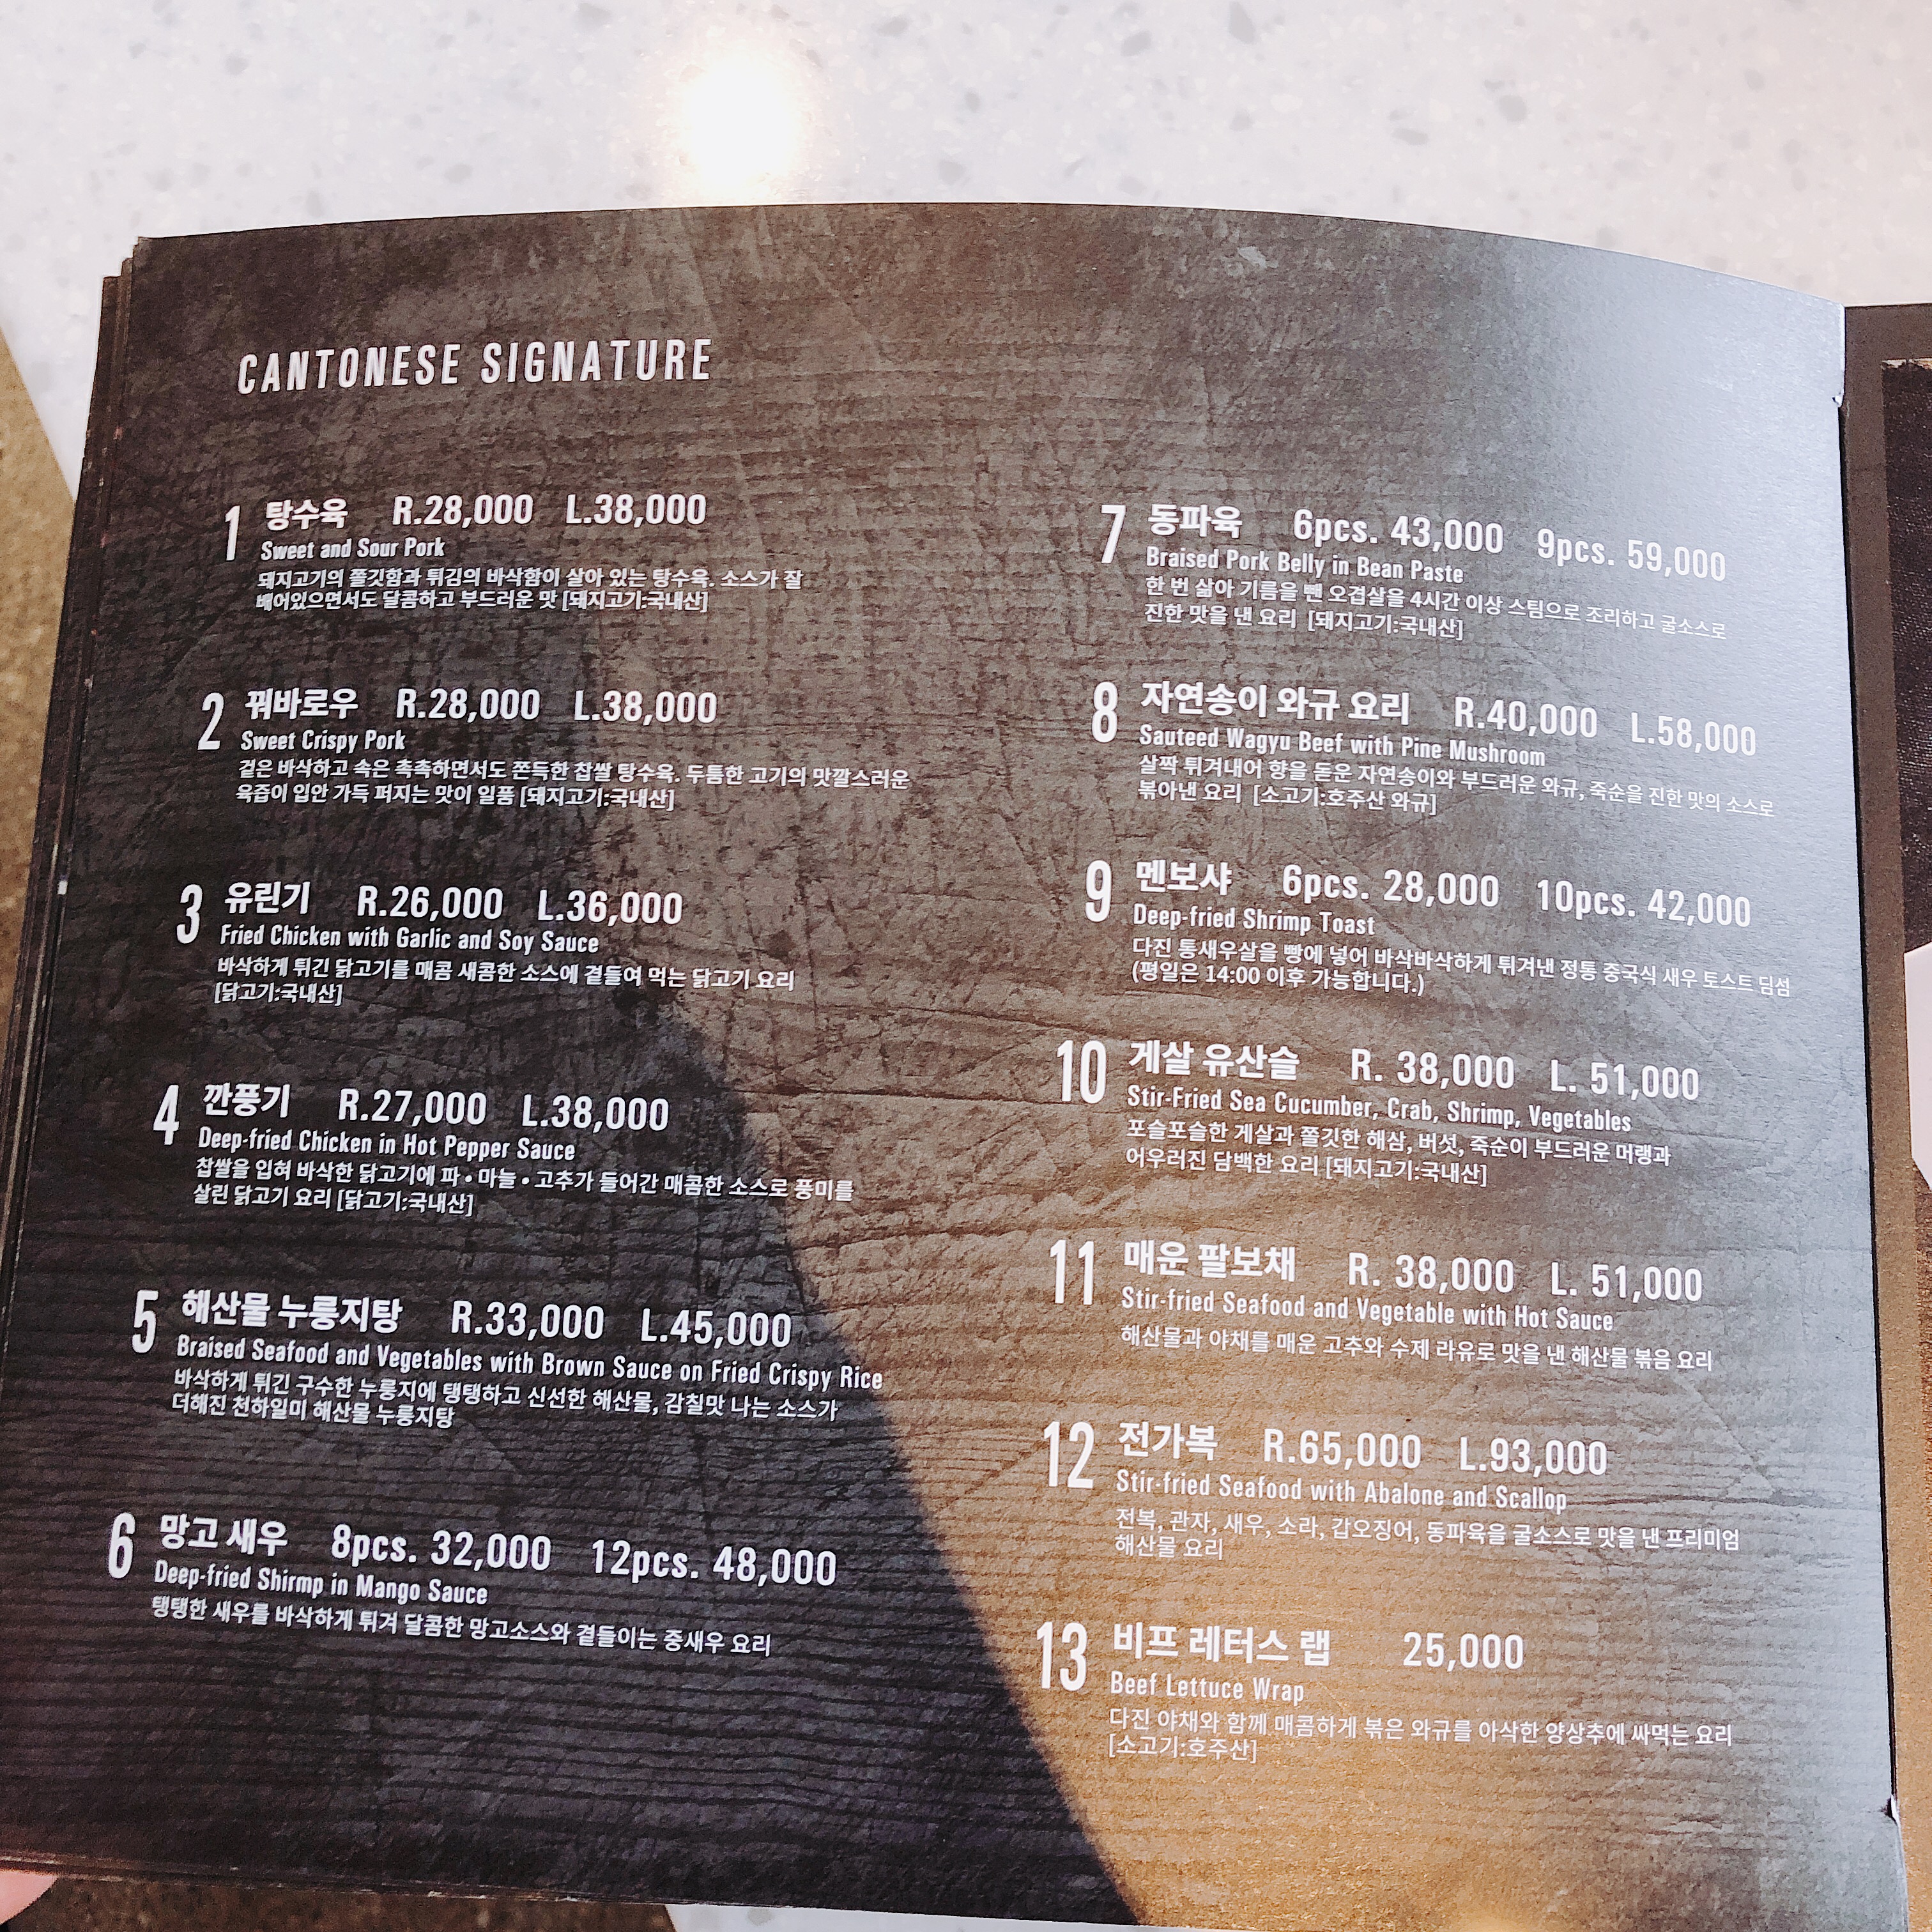 CANTONESE SIGNATURE
1 탕수육 R.28,000 L.38,000
Sweet and Sour Pork
돼지고기의 쫄깃함과 튀김의 바삭함이 살아 있는 탕수육. 소스가 잘
배어있으면서도 달콤하고 부드러운 맛 [돼지고기:국내산]
2 꿔바로우 R.28,000 L.38,000
Sweet Crispy Pork
겉은 바삭하고 속은 촉촉하면서도 쫀득한 찹쌀 탕수육. 두툼한 고기의 맛깔스러운
육즙이 입안 가득 퍼지는 맛이 일품 [돼지고기:국내산]
3 유린기 R.26,000 L.36,000
Fried Chicken with Garlic and Soy Sauce
바삭하게 튀긴 닭고기를 매콤 새콤한 소스에 곁들여 먹는 닭고기 요리
[닭고기:국내산]
4 깐풍기 R.27,000 L.38,000
Deep-fried Chicken in Hot Pepper Sauce
찹쌀을 입혀 바삭한 닭고기에 파 • 마늘 • 고추가 들어간 매콤한 소스로 풍미를
살린 닭고기 요리 [닭고기:국내산]
5 해산물 누룽지탕 R.33,000 L.45,000
Braised Seafood and Vegetables with Brown Sauce on Fried Crispy Rice
바삭하게 튀긴 구수한 누룽지에 탱탱하고 신선한 해산물, 감칠맛 나는 소스가
더해진 천하일미 해산물 누룽지탕
6 망고 새우 8pcs. 32,000 12pcs. 48,000
Deep-fried Shirmp in Mango Sauce
탱탱한 새우를 바삭하게 튀겨 달콤한 망고소스와 곁들이는 중새우 요리
7 동파육 6pcs. 43,000 9pcs. 59,000
Braised Pork Belly in Bean Paste
한 번 삶아 기름을 뺀 오겹살을 4시간 이상 스팀으로 조리하고 굴소스로
진한 맛을 낸 요리 [돼지고기:국내산]
8 자연송이 와규 요리 R.40,000 L.58,000
Sauteed Wagyu Beef with Pine Mushroom
살짝 튀겨내어 향을 돋운 자연송이와 부드러운 와규, 죽순을 진한 맛의 소스로
볶아낸 요리 [소고기:호주산 와규]
9 멘보샤 6pcs. 28,000 10pcs. 42,000
Deep-fried Shrimp Toast
다진 통새우살을 빵에 넣어 바삭바삭하게 튀겨낸 정통 중국식 새우 토스트 딤섬
(평일은 14:00 이후 가능합니다.)
10 게살 유산슬 R. 38,000 L. 51,000
Stir-Fried Sea Cucumber, Crab, Shrimp, Vegetables
포슬포슬한 게살과 쫄깃한 해삼, 버섯, 죽순이 부드러운 머랭과
어우러진 담백한 요리 [돼지고기:국내산]
11 매운 팔보채 R. 38,000 L. 51,000
Stir-fried Seafood and Vegetable with Hot Sauce
해산물과 야채를 매운 고추와 수제 라유로 맛을 낸 해산물 볶음 요리
12 전가복 R.65,000 L.93,000
Stir-fried Seafood with Abalone and Scallop
전복, 관자, 새우, 소라, 갑오징어, 동파육을 굴소스로 맛을 낸 프리미엄
해산물 요리
13 비프 레터스 랩 25,000
Beef Lettuce Wrap
다진 야채와 함께 매콤하게 볶은 와규를 아삭한 양상추에 싸먹는 요리
[소고기:호주산]